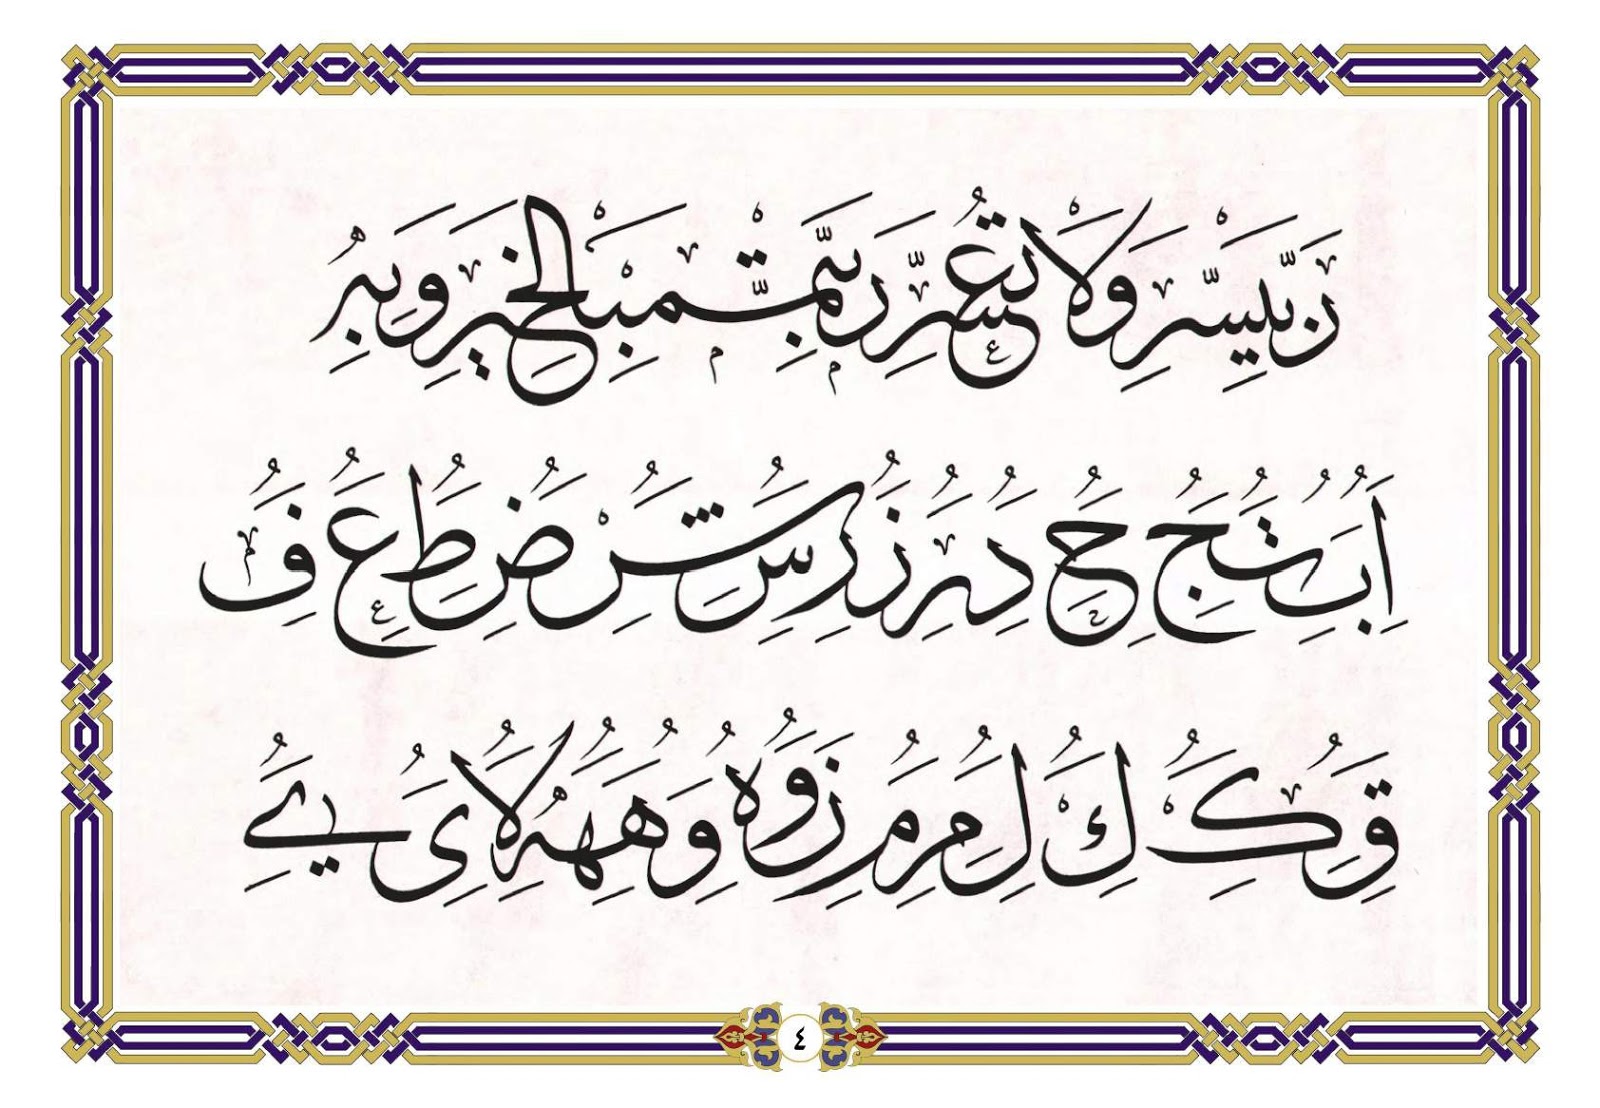 رَبِّ يَسِّرْ وَلَا تُعَسِّرْ رَبِّ تَمِّمْ بِالْخَيْرِ وَبِهِ
ا ب ت ج ح د ر ز ر س ش ض ط ع ف
ق ك ك ل م م ز و ه و ه ه ه لا ى ي
٤